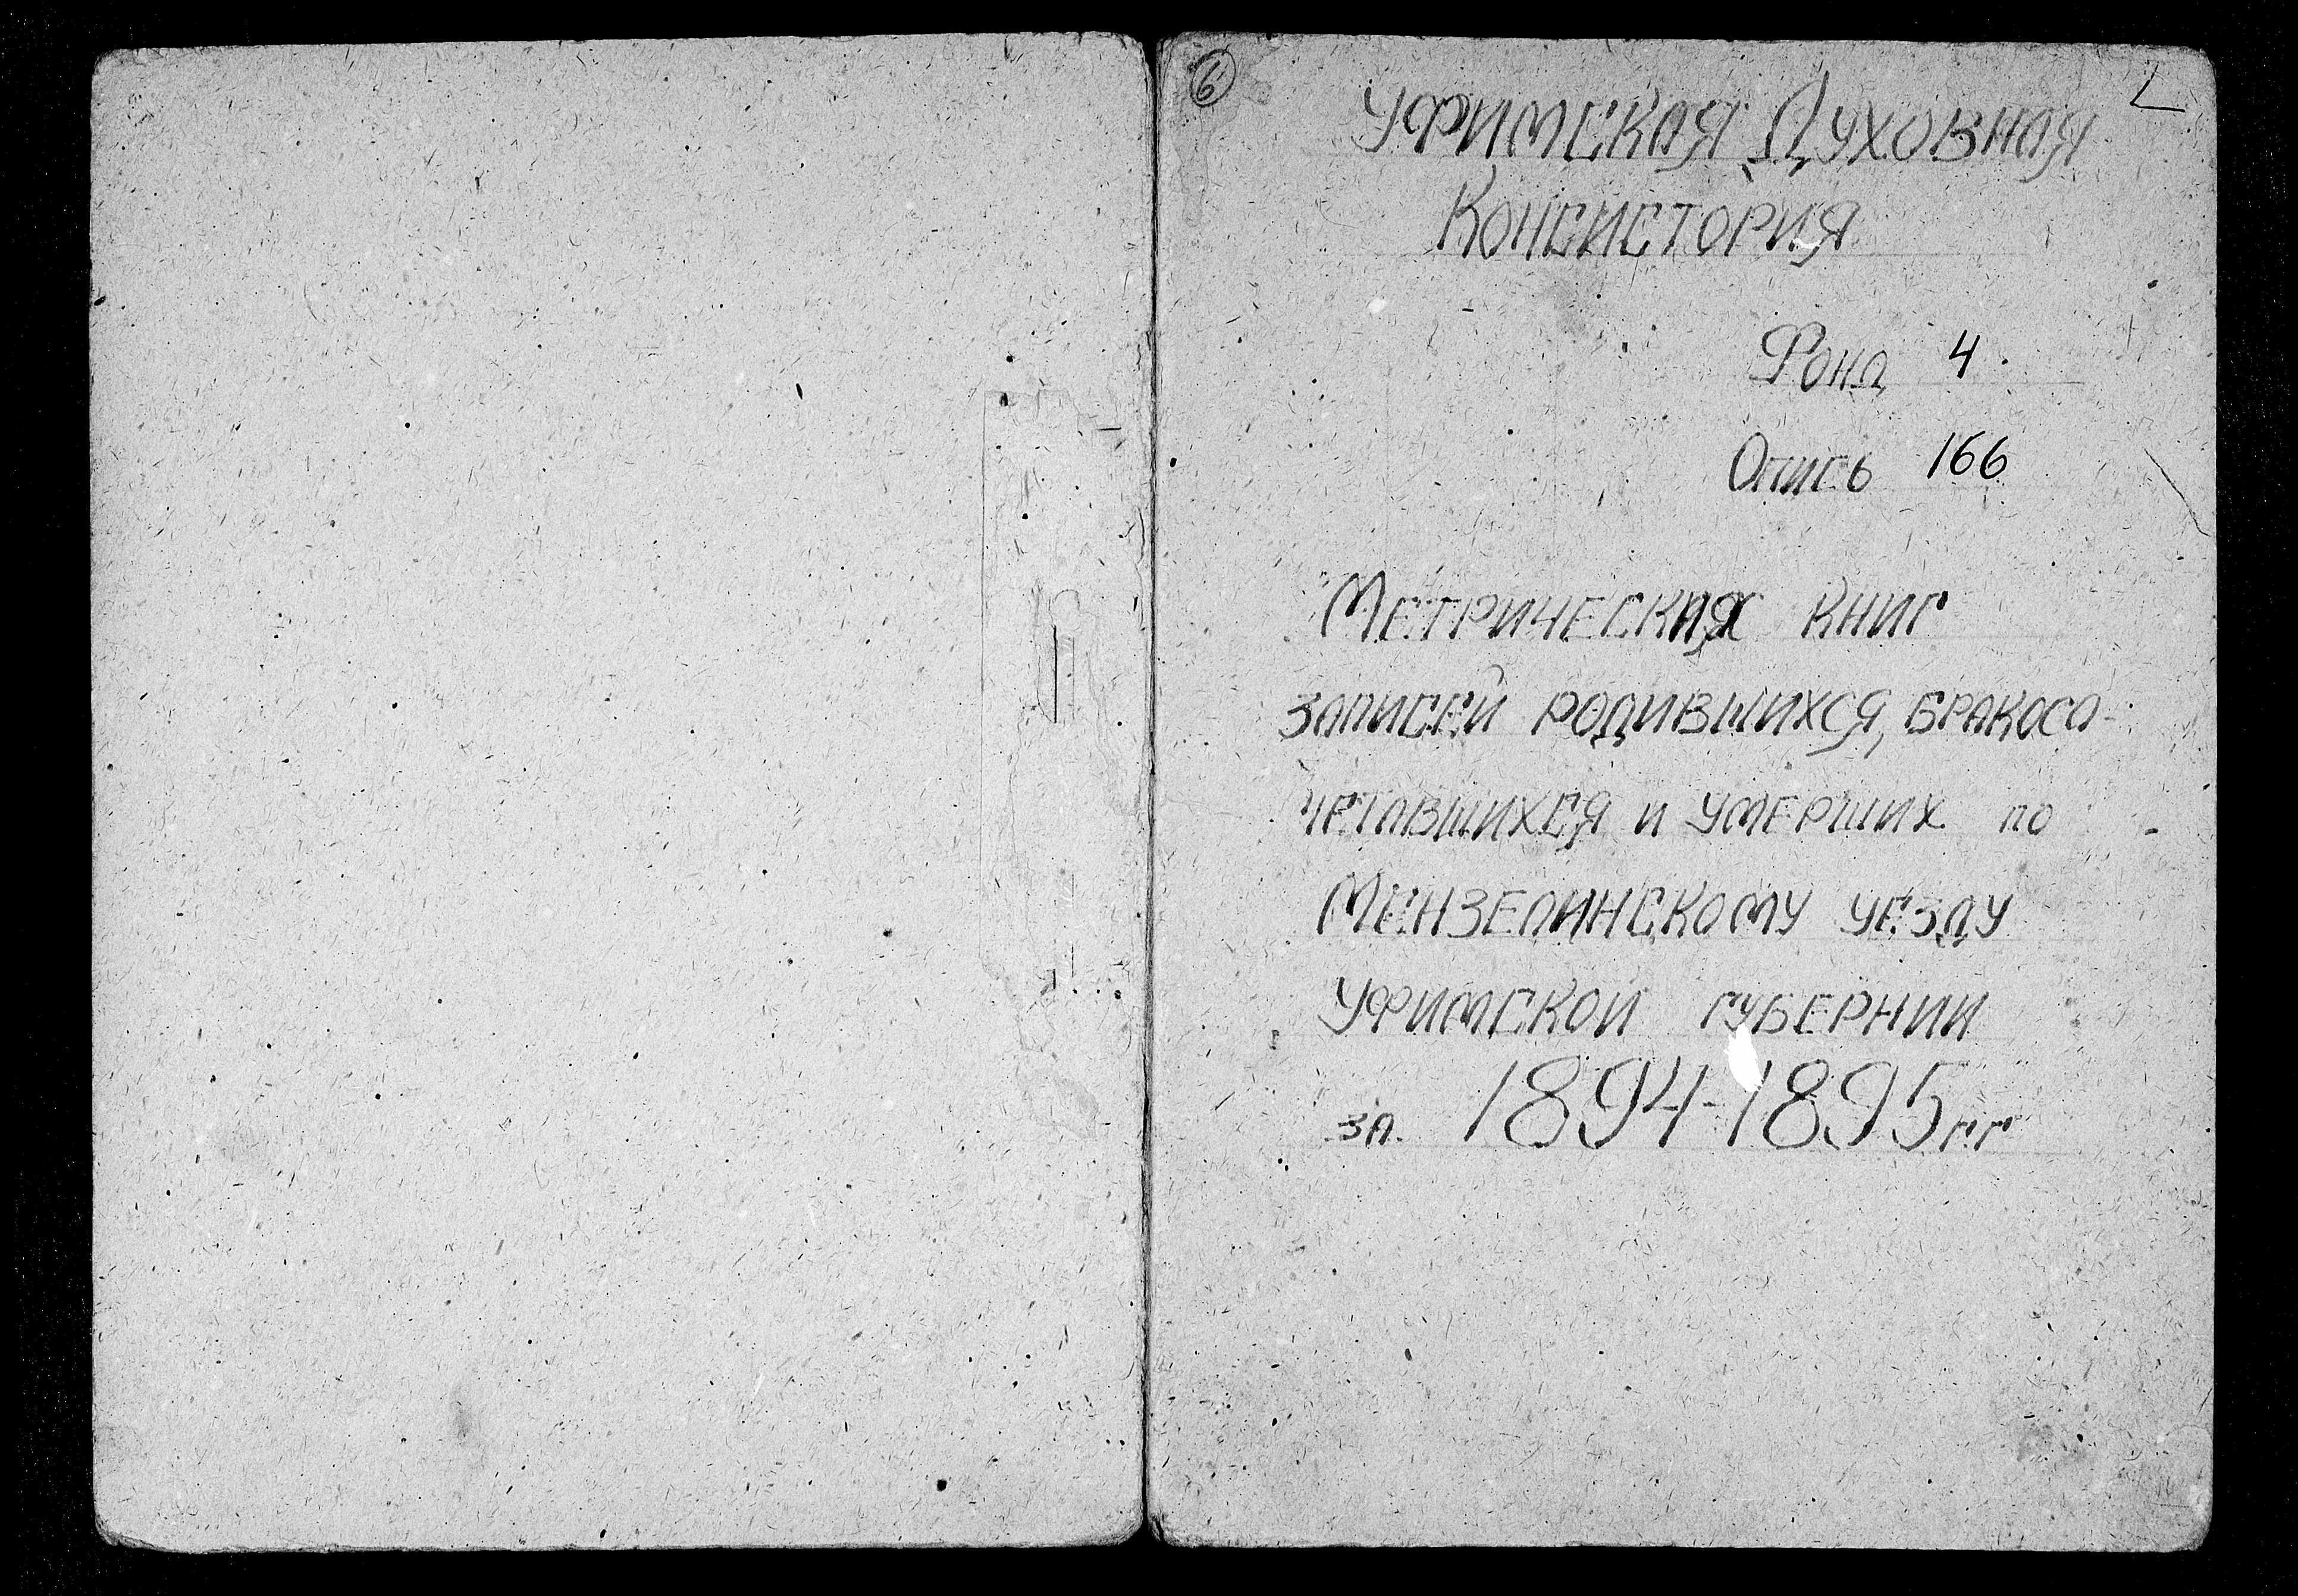 6
Уфимская Духовная
Консистория
Фонд 4.
Опись 166
Метрических книг
записей родившихся, бракосо-
четавшихся и умерших по
Мензелинскому уезду
Уфимской губернии
за 1894-1895 гг